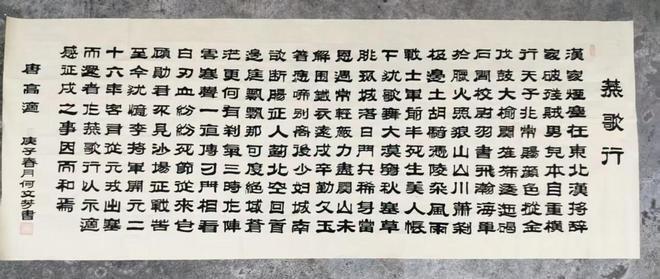 燕歌行
漢家煙塵在東北漢將辭
家破殘賊男兒本自重橫
行天子非常賜顏色摐金
伐鼓下榆關旌旆逶迤碣
石間校尉羽書飛瀚海單
于獵火照狼山山川蕭條
極邊土胡騎憑陵雜風雨
戰士軍前半死生美人帳
下猶歌舞大漠窮秋塞草
腓孤城落日鬥兵稀身當
恩遇常輕敵力盡關山未
解圍鐵衣遠戍辛勤久玉
箸應啼別離後少婦城南
欲斷腸征人薊北空回首
邊庭飄飄那可度絕域蒼
茫更何有剎氣三時作陣
雲寒聲一夜傳刁鬥相看
白刃血紛紛死節從來豈
顧勛君不見沙場征戰苦
至今猶憶李將軍開元二
十六年客有從元戎出塞
而還者作燕歌行以示適
感征戍之事因而和焉
唐高適 庚子春月何文芳書